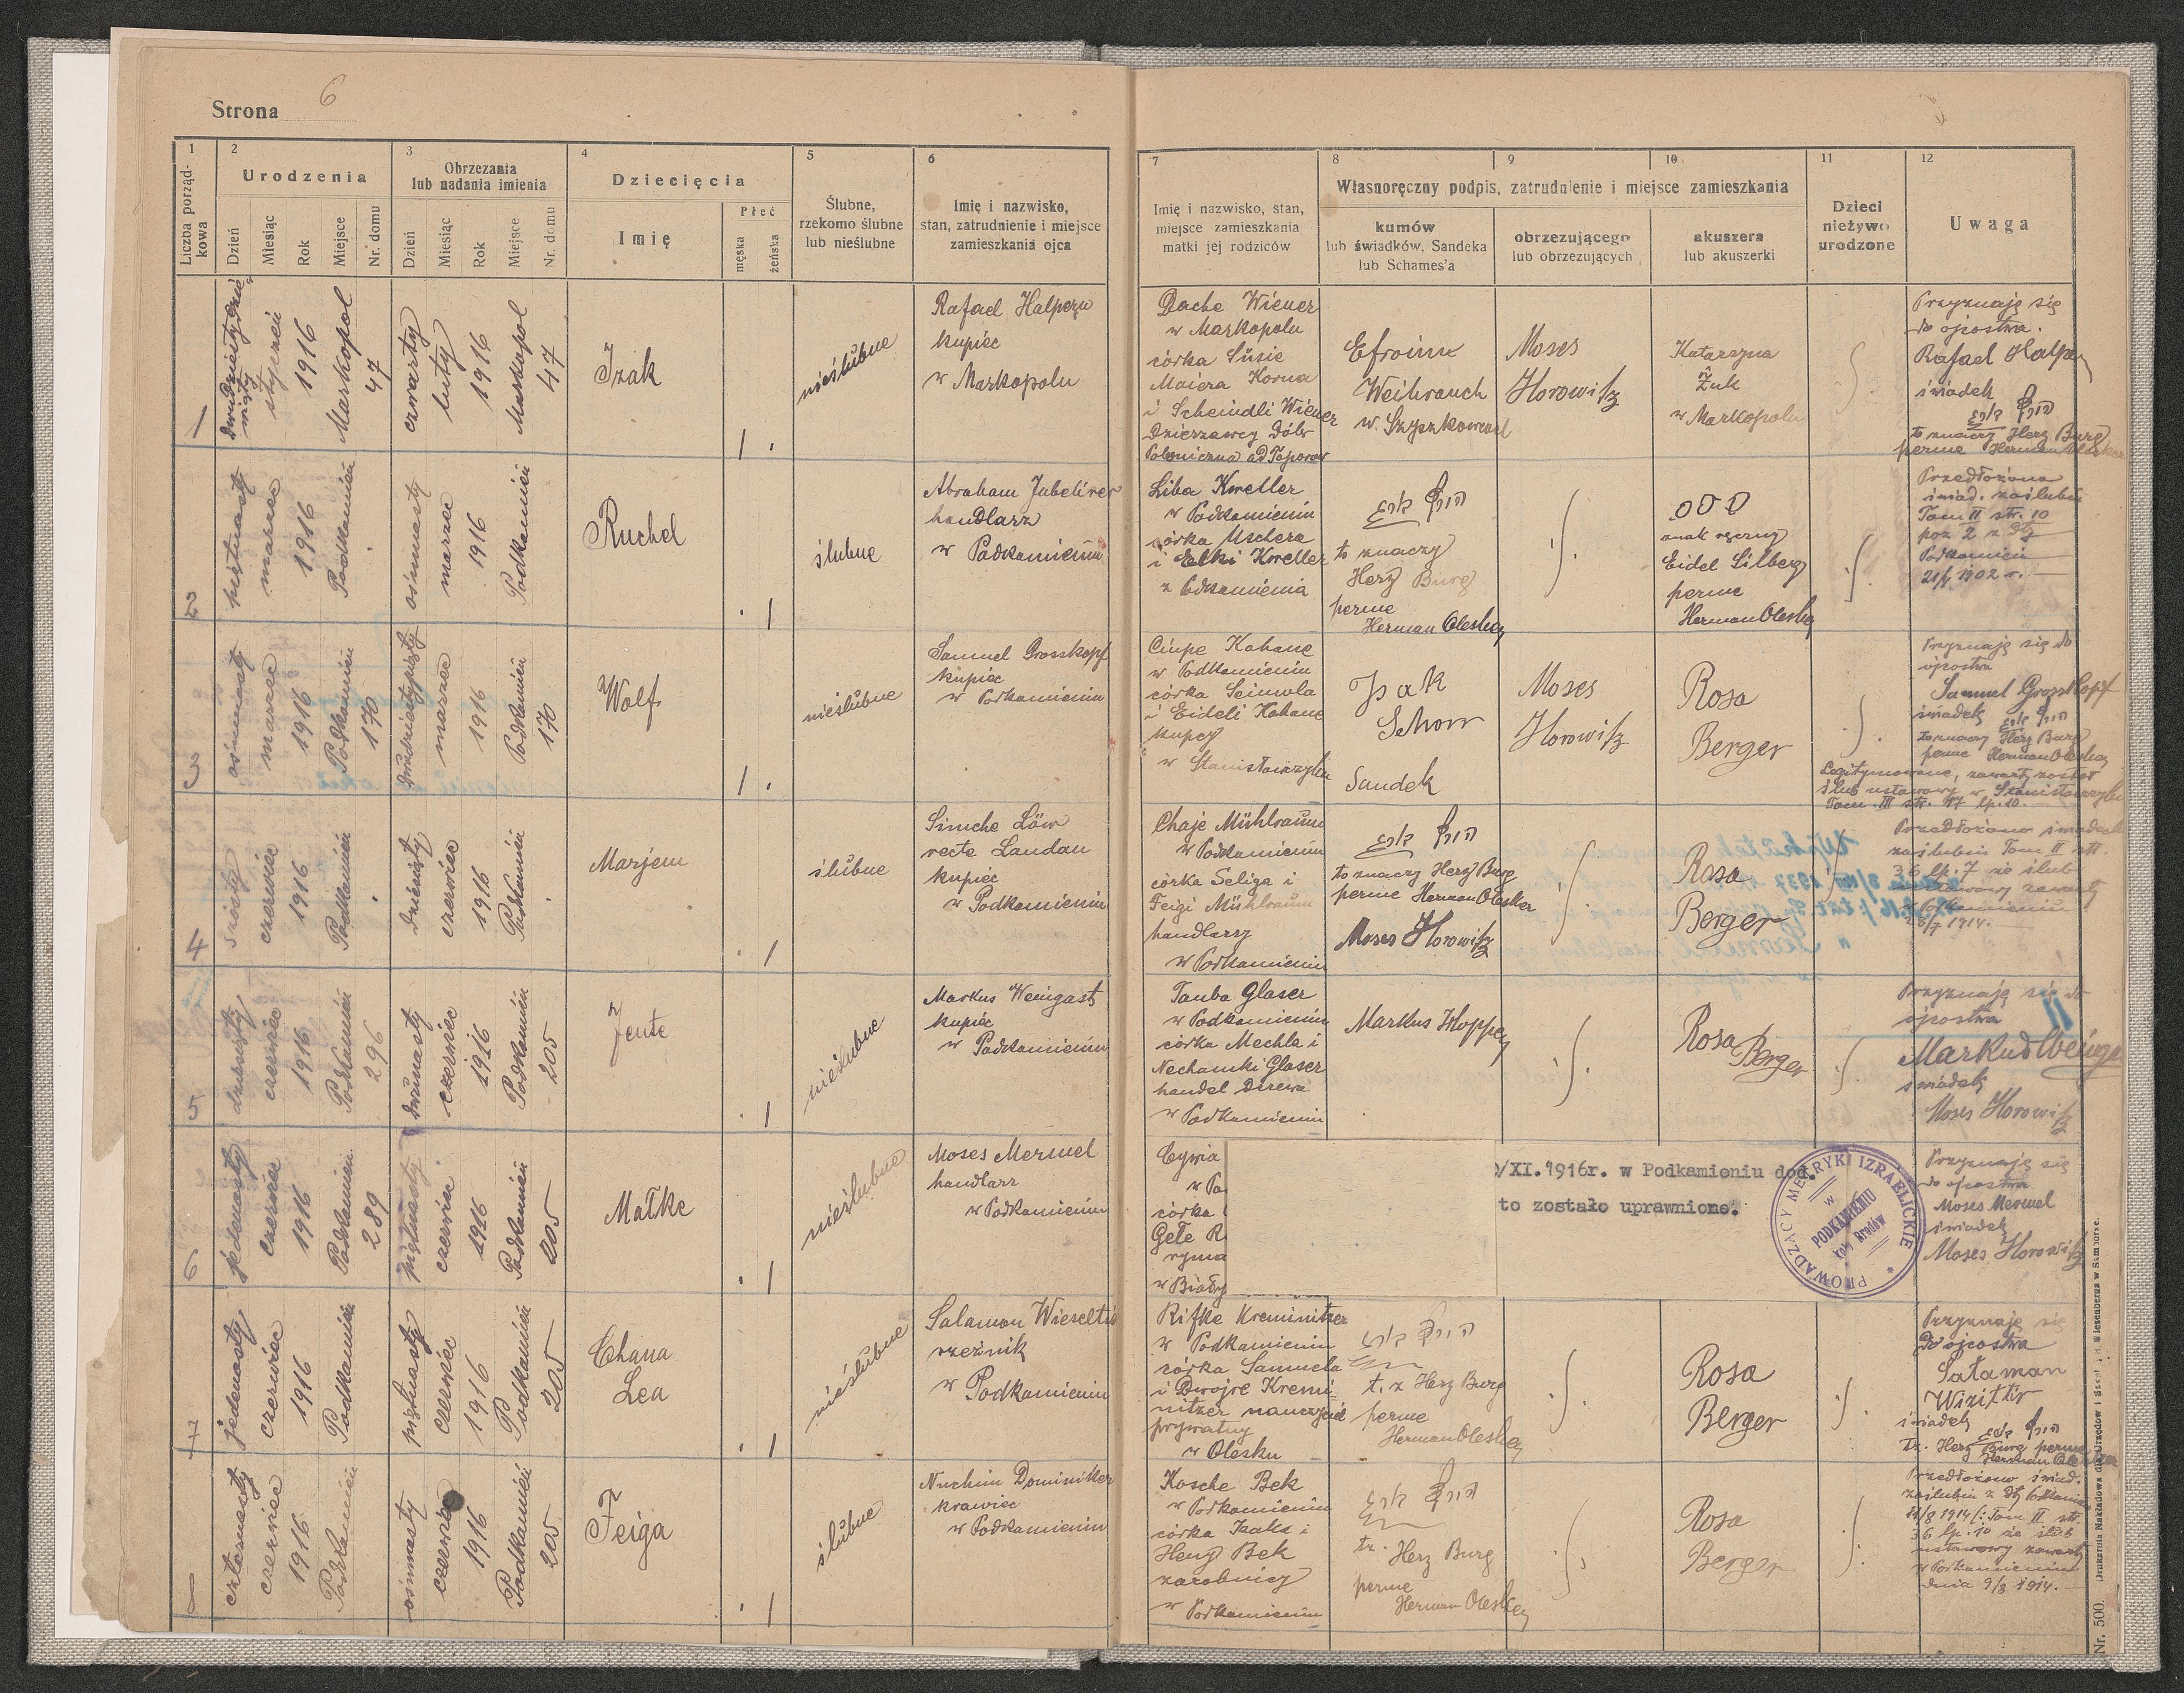 Strona 6
1
2
3
4
5
6
Liczba porząd-
kowa
Urodzenia
Dzień
Miesiąc
Rok
Miejsce
Nr. domu
Obrzezania
lub nadania imienia
Dzień
Miesiąc
Rok
Miejsce
Nr. domu
Dziecięcia
Imię
Płeć
męska
żeńska
Ślubne,
rzekomo ślubne
lub nieślubne
Imię i nazwisko,
stan, zatrudnienie i miejsce
zamieszkania ojca
7
8
9
10
11
12
Imię i nazwisko, stan,
miejsce zamieszkania
matki jej rodziców
Własnoręczny podpis, zatrudnienie i miejsce zamieszkania
kumów
lub świadków, Sandeka
lub Schames'a
obrzezującego
lub obrzezujących
akuszera
lub akuszerki
Dzieci
nieżywo
urodzone
Uwaga
1
styczeń
1916
Markopol
47
czwarty
luty
1916
Markopol
47
Izak
nieślubne
Rafael Halpern
kupiec
w Markopolu
Dache Wiener
w Markopolu
córka Süsie
Maiera Korna
i Scheindli Wiener
Dzierzawcy Dóbr
Efroim
Weihrauch
Moses
Horowitz
Katarzyna
Żuk
w Markopolu
Przyznaję się
do ojcostwa.
Rafael Halpern
świadek
to znaczy Herz Burg
2
piętnasty
marzec
1916
Podkamień
ośmnasty
marzec
1916
Podkamień
Ruchel
ślubne
Abraham Jubelirer
handlarz
w Podkamieniu
Liba Kreller
w Podkamieniu
córka Uschera
i Elki Kreller
z Podkamienia
to znaczy
Herz Burg
perme
Herman Olesker
ooo
znak ręczny
Eidel Silberg
perme
Herman Olesker
Przedłożono
świad. zaślubin
Tom II str. 10
poz 2 z dtz
Podkamień
1902 r.
3
ośmnasty
marzec
1916
Podkamień
170
dwudziestypiąty
marzec
1916
Podkamień
170
Wolf
nieślubne
Samuel Grosskopf
kupiec
w Podkamieniu
Cirpe Kahane
w Podkamieniu
córka Seinwola
i Eideli Kahane
kupcy
w Stanisławczyku
Isak
Schorr
Sandek
Moses
Horowitz
Rosa
Berger
Przyznaję się do
ojcostwa
Samuel Grosskopf
świadek
to znaczy Herz Burg
perme Herman Olesker
Legitymowane, zawarty został
ślub ustawowy w Stanisławczyku
Tom. III str. 47 lp. 10.
4
szósty
czerwiec
1916
Podkamień
dziesiąty
czerwiec
1916
Podkamień
Marjem
ślubne
Simche Löw
recte Landau
kupiec
w Podkamieniu
Chaje Mühlraum
w Podkamieniu
córka Seliga i
Feigi Mühlraum
handlarzy
w Podkamieniu
to znaczy Herz Burg
perme Herman Olesker
Moses Horowitz
Rosa
Berger
zaślubin Tom II str.
36 lp. 7 że ślub
ustawowy zawarty
w Podkamieniu
28/7 1914.
5
dziesiąty
czerwiec
1916
Podkamień
296
dwunasty
czerwiec
1916
Podkamień
205
Jente
nieślubne
Markus Weingast
kupiec
w Podkamieniu
Tauba Glaser
w Podkamieniu
córka Mechla i
Nechamki Glaser
handel Drzewa
w Podkamieniu
Markus Hoppen
Rosa Berger
Przyznaję się do
ojcostwa
świadek
Moses Horowitz
6
jedenasty
czerwiec
1916
Podkamień
289
piętnasty
czerwiec
1916
Podkamień
205
Małke
nieślubne
Moses Mermel
handlarz
w Podkamieniu
Cywia
w Po
córka
Gele R
ryma
w Biały
/XI.1916r. w Podkamieniu dod.
to zostało uprawnione.
PROWADZĄCY METRYKI IZRAELICKIE
w
PODKAMIENIU
koło Brodów
Przyznaję się
do ojcostwa
Moses Mermel
świadek
Moses Horowitz
7
jedenasty
czerwiec
1916
Podkamień
piętnasty
czerwiec
1916
Podkamień
205
Chana
Lea
nieślubne
Salamon Wieseltir
rzeźnik
w Podkamieniu
Rifke Kreminitzer
w Podkamieniu
córka Samuela
i Dwojre Kremi-
nitzer nauczyciel
prywatny
w Olesku
t. z Herz Burg
perme
Herman Olesker
Rosa
Berger
Przyznaję się
Do ojcostwa
Sałaman
świadek
tz. Herz Burg perme
Herman Olesker
czternasty
czerwiec
1916
Podkamień
ośmnasty
czerwiec
1916
Podkamień
205
Feiga
ślubne
Nuchim Dominitker
krawiec
w Podkamieniu
Kosche Bek
w Podkamieniu
córka Izaka i
Heny Bek
zarobnicy
w Podkamieniu
tz. Herz Burg
perme
Herman Olesker
Rosa
Berger
Przedłożono świad.
zaślubin z dtz Podkamień
1914 Tom II str.
36 lp. 10 że ślub
ustawowy zawarty
w Podkamieniu
dnia 9/8 1914.
Nr. 500.